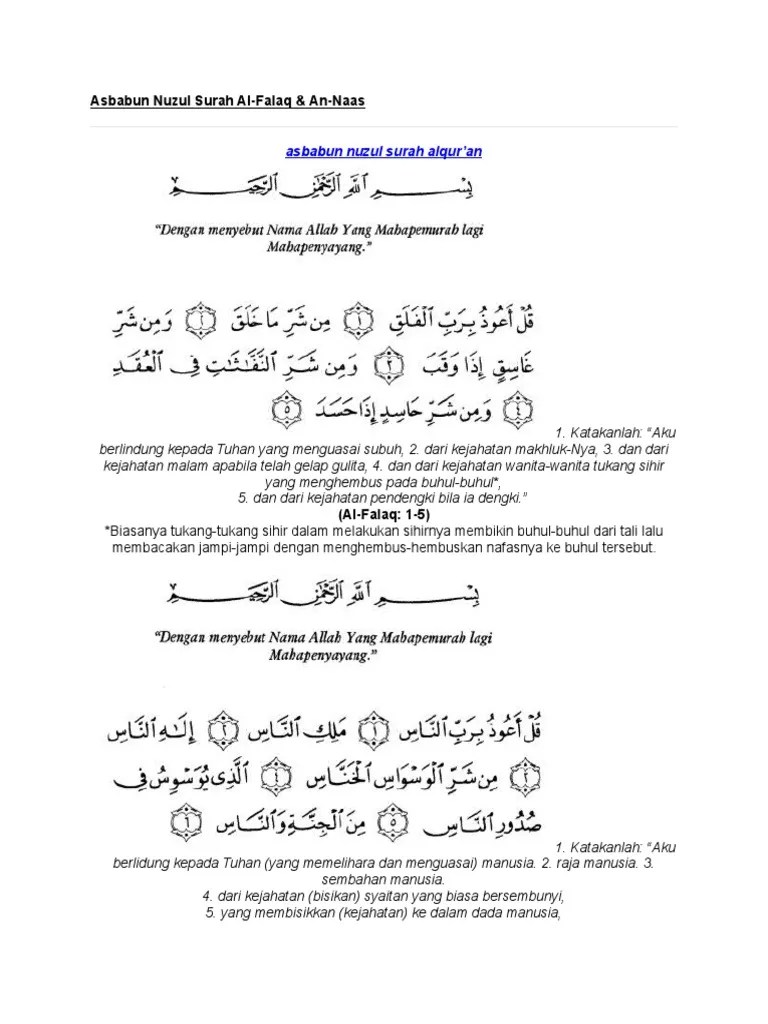 Asbabun Nuzul Surah Al-Falaq & An-Naas
asbabun nuzul surah alqur’an
بِسْمِ اللَّهِ الرَّحْمَٰنِ الرَّحِيمِ
“Dengan menyebut Nama Allah Yang Mahapemurah lagi
Mahapenyayang.”
قُلْ أَعُوذُ بِرَبِّ ٱلْفَلَقِ ١ مِن شَرِّ مَا خَلَقَ ٢ وَمِن شَرِّ
غَاسِقٍ إِذَا وَقَبَ ٣ وَمِن شَرِّ ٱلنَّفَّٰثَٰتِ فِى ٱلْعُقَدِ
٤ وَمِن شَرِّ حَاسِدٍ إِذَا حَسَدَ ٥
1. Katakanlah: “Aku
berlindung kepada Tuhan yang menguasai subuh, 2. dari kejahatan makhluk-Nya, 3. dan dari
kejahatan malam apabila telah gelap gulita, 4. dan dari kejahatan wanita-wanita tukang sihir
yang menghembus pada buhul-buhul*,
5. dan dari kejahatan pendengki bila ia dengki.”
(Al-Falaq: 1-5)
*Biasanya tukang-tukang sihir dalam melakukan sihirnya membikin buhul-buhul dari tali lalu
membacakan jampi-jampi dengan menghembus-hembuskan nafasnya ke buhul tersebut.
بِسْمِ اللَّهِ الرَّحْمَٰنِ الرَّحِيمِ
“Dengan menyebut Nama Allah Yang Mahapemurah lagi
Mahapenyayang.”
قُلْ أَعُوذُ بِرَبِّ ٱلنَّاسِ ١ مَلِكِ ٱلنَّاسِ ٢ إِلَٰهِ ٱلنَّاسِ
٣ مِن شَرِّ ٱلْوَسْوَاسِ ٱلْخَنَّاسِ ٤ ٱلَّذِى يُوَسْوِسُ فِى
صُدُورِ ٱلنَّاسِ ٥ مِنَ ٱلْجِنَّةِ وَٱلنَّاسِ ٦
1. Katakanlah: “Aku
berlidung kepada Tuhan (yang memelihara dan menguasai) manusia. 2. raja manusia. 3.
sembahan manusia.
4. dari kejahatan (bisikan) syaitan yang biasa bersembunyi,
5. yang membisikkan (kejahatan) ke dalam dada manusia,